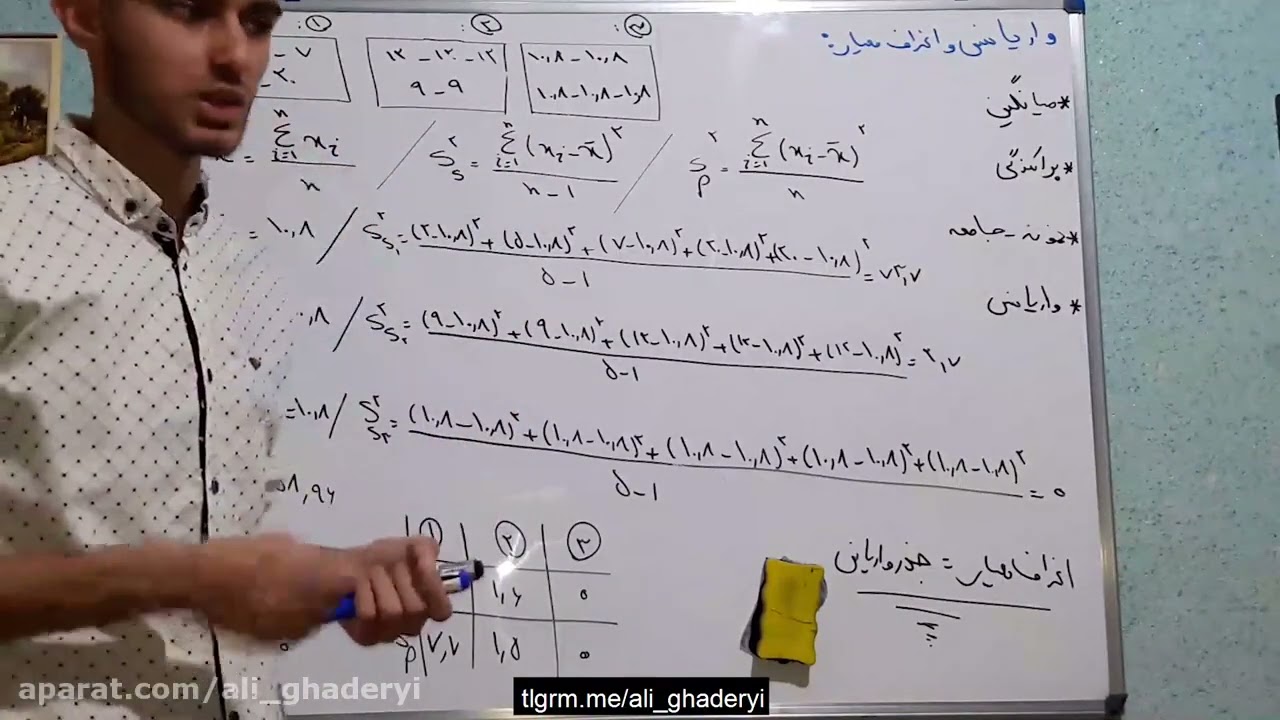 واریانس و انحراف معیار:
* میانگین
* پراکندگی
* نمونه - جامعه
* واریانس
انحراف معیار = جذر واریانس
① :
② :
③ :
- ۷
- ۲۰
۱۲ - ۱۲ - ۱۲
۹ - ۹
۱۰,۸ - ۱۰,۸
۱۰,۸ - ۱۰,۸ - ۱۰,۸
= Σ xᵢ / n
i=1 n
/ S²ₛ = Σ (xᵢ - x̄)² / n - 1
i=1 n
/ S²ₚ = Σ (xᵢ - x̄)² / n
i=1 n
= ۱۰,۸ / S²ₛ₁ = (۲-۱۰,۸)² + (۵-۱۰,۸)² + (۷-۱۰,۸)² + (۲۰-۱۰,۸)² + (۲۰-۱۰,۸)² / ۵-۱ = ۷۳,۷
۰,۸ / S²ₛ₂ = (۹-۱۰,۸)² + (۹-۱۰,۸)² + (۱۲-۱۰,۸)² + (۱۲-۱۰,۸)² + (۱۲-۱۰,۸)² / ۵-۱ = ۲,۷
= ۱۰,۸ / S²ₛ₃ = (۱۰,۸-۱۰,۸)² + (۱۰,۸-۱۰,۸)² + (۱۰,۸-۱۰,۸)² + (۱۰,۸-۱۰,۸)² + (۱۰,۸-۱۰,۸)² / ۵-۱ = ۰
۵۸,۹۶
① | ② | ③
۱,۶ | ۰
p | ۷,۷ | ۱,۵ | ۰
aparat.com/ali_ghaderyi
tlgrm.me/ali_ghaderyi